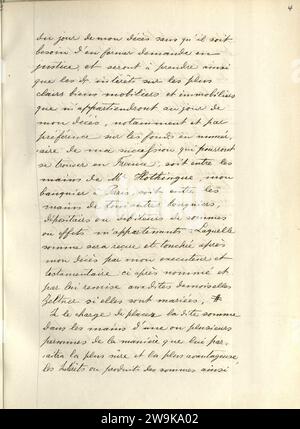 4
du jour de mon décès sans qu'il soit
besoin d'en former demande en
justice, et seront à prendre ainsi
que les dts intérêts sur les plus
clairs biens mobiliers et immobiliers
qui m'appartiendront au jour de
mon décès, notamment et par
préférence sur les fonds en numé-
raire de ma succession qui pourront
se trouver en France, soit entre les
mains de Mr Hottingue, mon
banquier à Paris, soit entre les
mains de tous autres banquiers,
dépositaires ou débiteurs de sommes
ou effets m'appartenants. Laquelle
somme sera reçue et touchée après
mon décès par mon exécuteur
testamentaire ci après nommé et
par lui remise aux dites demoiselles
si elles sont mariées,
À le charge de placer la dite somme
dans les mains d'une ou plusieurs
personnes de la manière que lui par-
aîtra la plus sûre et la plus avantageuse,
les intérêts ou produits des sommes ainsi
alamy
Image ID: 2W9KA02
www.alamy.com